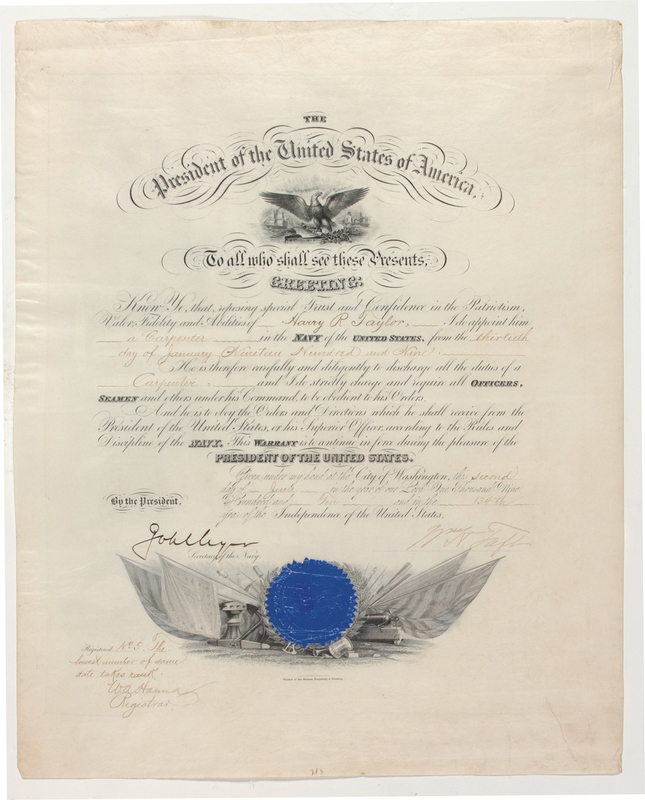 THE
President of the United States of America,
To all who shall see these Presents,
GREETING:
Know Ye, that, reposing special Trust and Confidence in the Patriotism,
Valor, Fidelity and Abilities of Harry R. Taylor, I do appoint him
a Carpenter in the NAVY of the UNITED STATES, from the thirtieth
day of January Nineteen Hundred and Nine.
He is therefore carefully and diligently to discharge all the duties of a
Carpenter, and I do strictly charge and require all OFFICERS,
SEAMEN and others under his Command, to be obedient to his Orders.
And he is to obey the Orders and Directions which he shall receive from the
President of the United States, or his Superior Officer, according to the Rules and
Discipline of the NAVY. This WARRANT is to continue in force during the pleasure of the
PRESIDENT OF THE UNITED STATES.
Given under my hand at the City of Washington, this second
day of July in the year of our Lord One Thousand Nine
Hundred and Nine and in the 134th
year of the Independence of the United States.
By the President,
Wm H Taft
Secretary of the Navy.
Registered No 5. The
lowest number of same
date takes rank.
Registrar